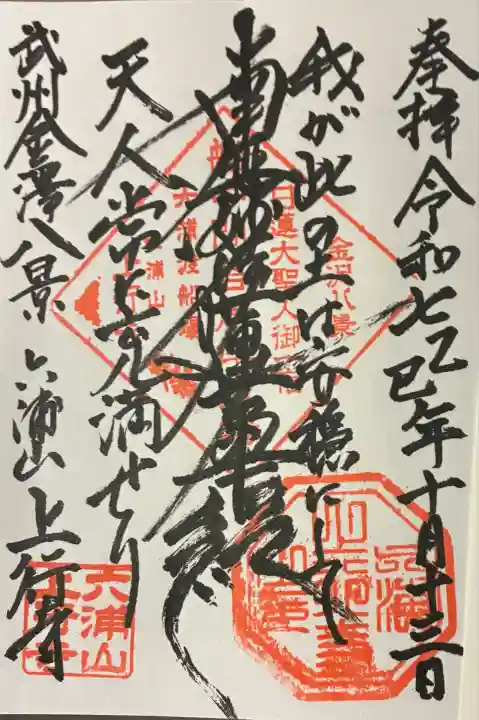 奉拝 令和七乙巳年十月十三日
我が此の土は安穏にして
南無妙法蓮華経
天人常に充満せり
武州金澤八景 六浦山 上行寺
金沢八景
日蓮大聖人御
六浦
船
六浦山
上行寺
六浦
山